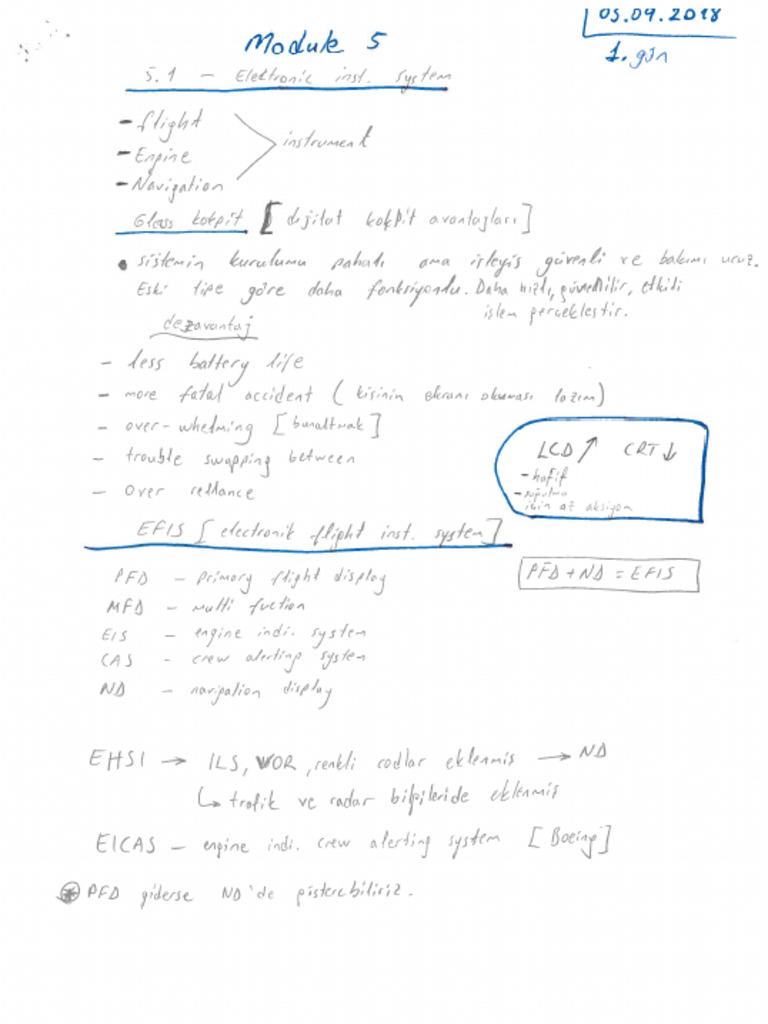 05.09.2018
Module 5
1. gün
5.1 - Elektronic inst. system
- flight
instrument
- Engine
- Navigation
Glass kokpit [dijital kokpit avantajları]
• sistemin kurulumu pahalı ama işleyiş güvenli ve bakımı ucuz.
Eski tipe göre daha fonksiyonlu. Daha hızlı, güvenilir, etkili
işlem gerçekleştir.
dezavantaj
- less battery life
- more fatal accident (kişinin ekranı okuması lazım)
- over-whelming [bunaltmak]
- trouble swapping between
- over reliance
LCD ↑ CRT ↓
- hafif
- soğutma
için az aksiyon
EFIS [electronik flight inst. system]
PFD - primary flight display
PFD + ND = EFIS
MFD - multi fuction
EIS - engine indi. system
CAS - crew alerting system
ND - navigation display
EHSI → ILS, VOR, renkli codlar eklenmiş → ND
↳ trafik ve radar bilgileride eklenmiş
EICAS - engine indi. crew alerting system [Boeing]
* PFD giderse ND'de gösterebiliriz.